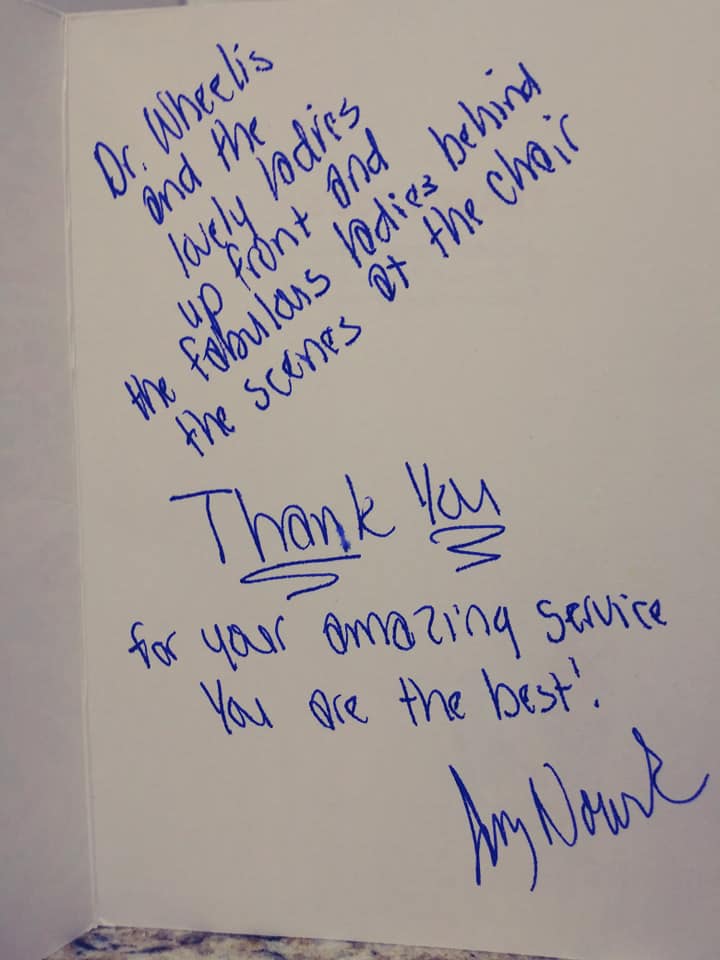 Dr. Wheelis
and the
lovely ladies
up front and
the fabulous ladies behind
the scenes at the chair
Thank You
for your amazing service
You are the best!
Amy